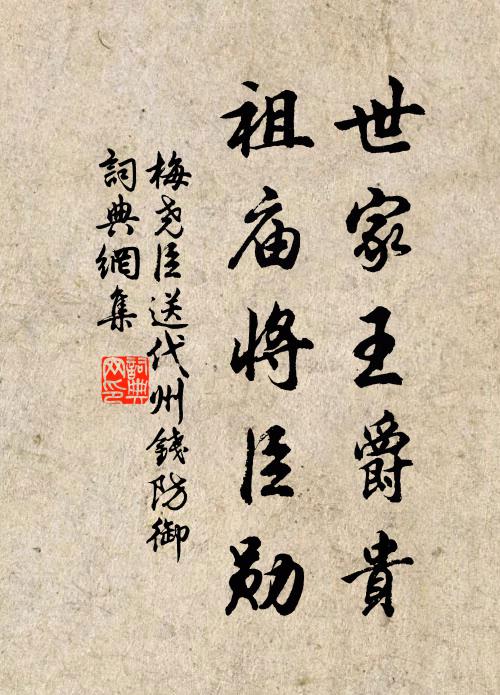 世家王爵貴
祖庙將臣勋
梅尧臣送代州錢防御
詞典網集
詞典
网印